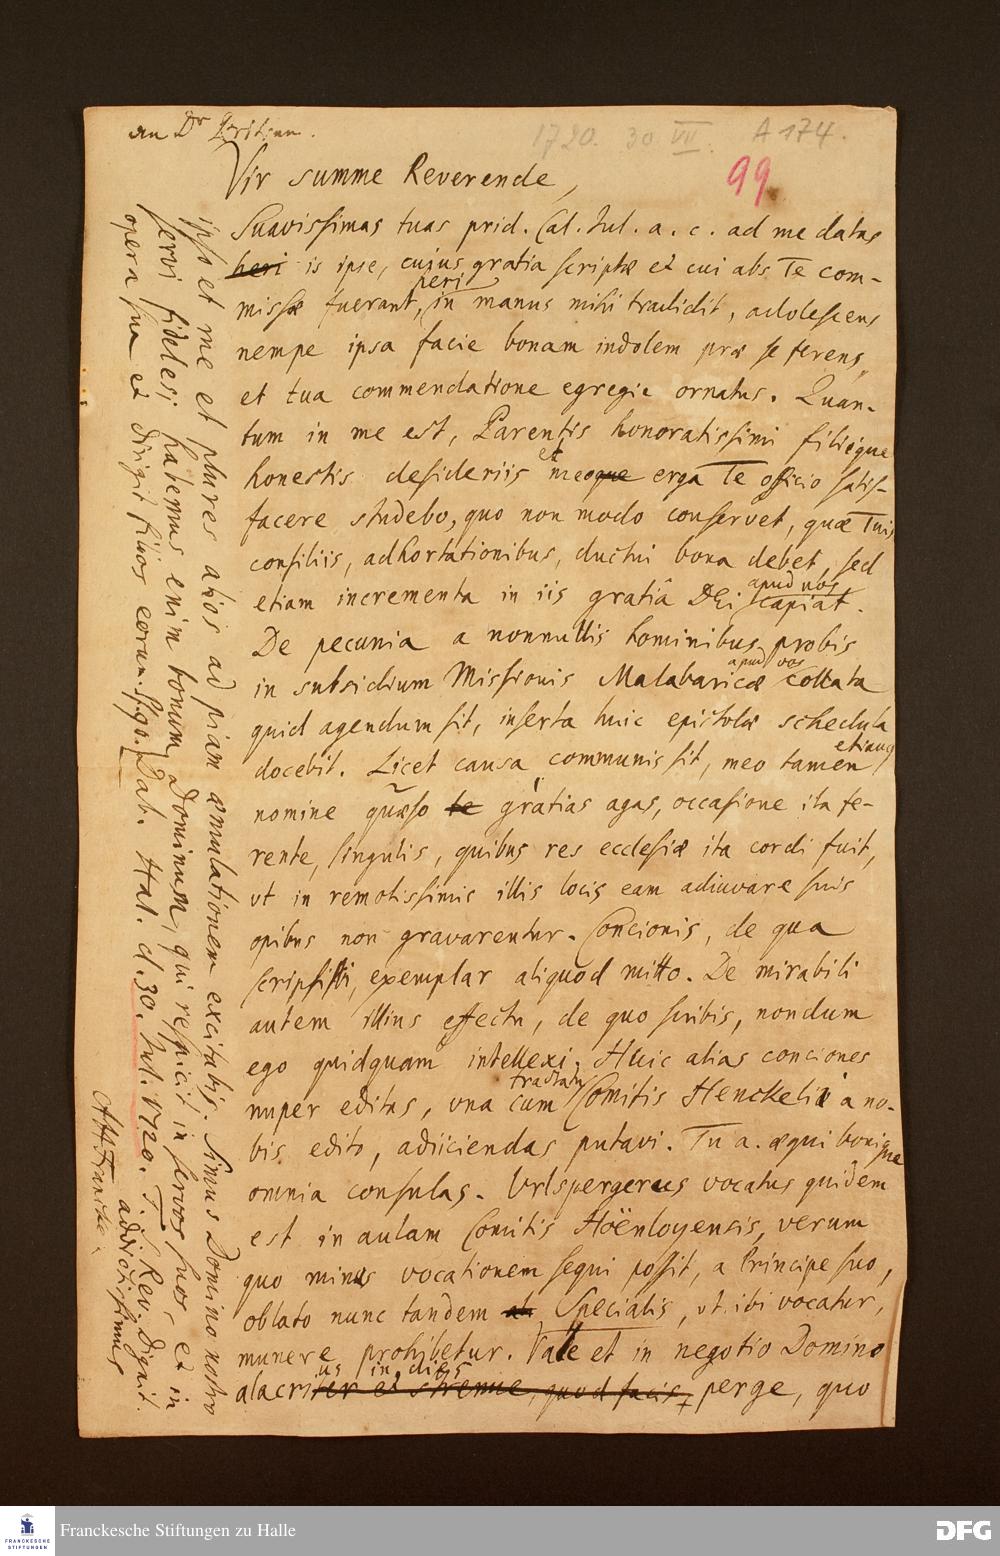 an Dr
1720. 30 VII. A 174.
99
Vir summe Reverende,
Suavissimas tuas prid. Cal. Jul. a. c. ad me datas
heri is ipse, cujus gratia scriptæ et cui abs Te com-
missæ fuerant, heri in manus mihi tradidit, adolescens
nempe ipsa facie bonam indolem præ se ferens,
et tua commendatione egregie ornatus. Quan-
tum in me est, Parentis honoratissimi filiique
honestis desideriis et meoque erga Te officio satis-
facere studebo, quo non modo conservet, quæ Tuis
consiliis, adhortationibus, ductui bona debet, sed
etiam incrementa in iis gratiâ DEi apud nos capiat.
De pecunia a nonnullis hominibus probis
in subsidium Missionis Malabaricæ apud vos collata
quid agendum sit, inserta huic epistolæ schedula
docebit. Licet causa communis sit, meo tamen etiam
nomine quæso te gratias agas, occasione ita fe-
rente, singulis, quibus res ecclesiæ ita cordi fuit,
ut in remotissimis illis locis eam adiuvare suis
opibus non gravarentur. Concionis, de qua
scripsisti, exemplar aliquod mitto. De mirabili
autem illius effectu, de quo scribis, nondum
ego quidquam intellexi. Huic alias conciones
nuper editas, una cum tractatu Comitis Henckelii a no-
bis edito, adiiciendas putavi. Tu a. æqui bonique
omnia consulas. Urlspergerus vocatus quidem
est in aulam Comitis Hoënloyensis, verum
quo minus vocationem sequi possit, a Principe suo,
oblato nunc tandem ab Specialis, ut ibi vocatur,
munere prohibetur. Vale et in negotio Domino
alacrius in dies alacriter et strenue, quod facis, perge, quo
ipso et me et plures alios ad piam æmulationem excitabis. Simus Domino nostro
servi fideles; habemus enim bonum Dominum, qui respicit in servos suos et in
opera sua et dirigit filios eorum. Sqo. Dab. Hal. d. 30. Jul. 1720. T. Rev. Dignit.
addictissimus
AHFrancke.
Franckesche Stiftungen zu Halle
FRANCKESCHE
STIFTUNGEN
DFG